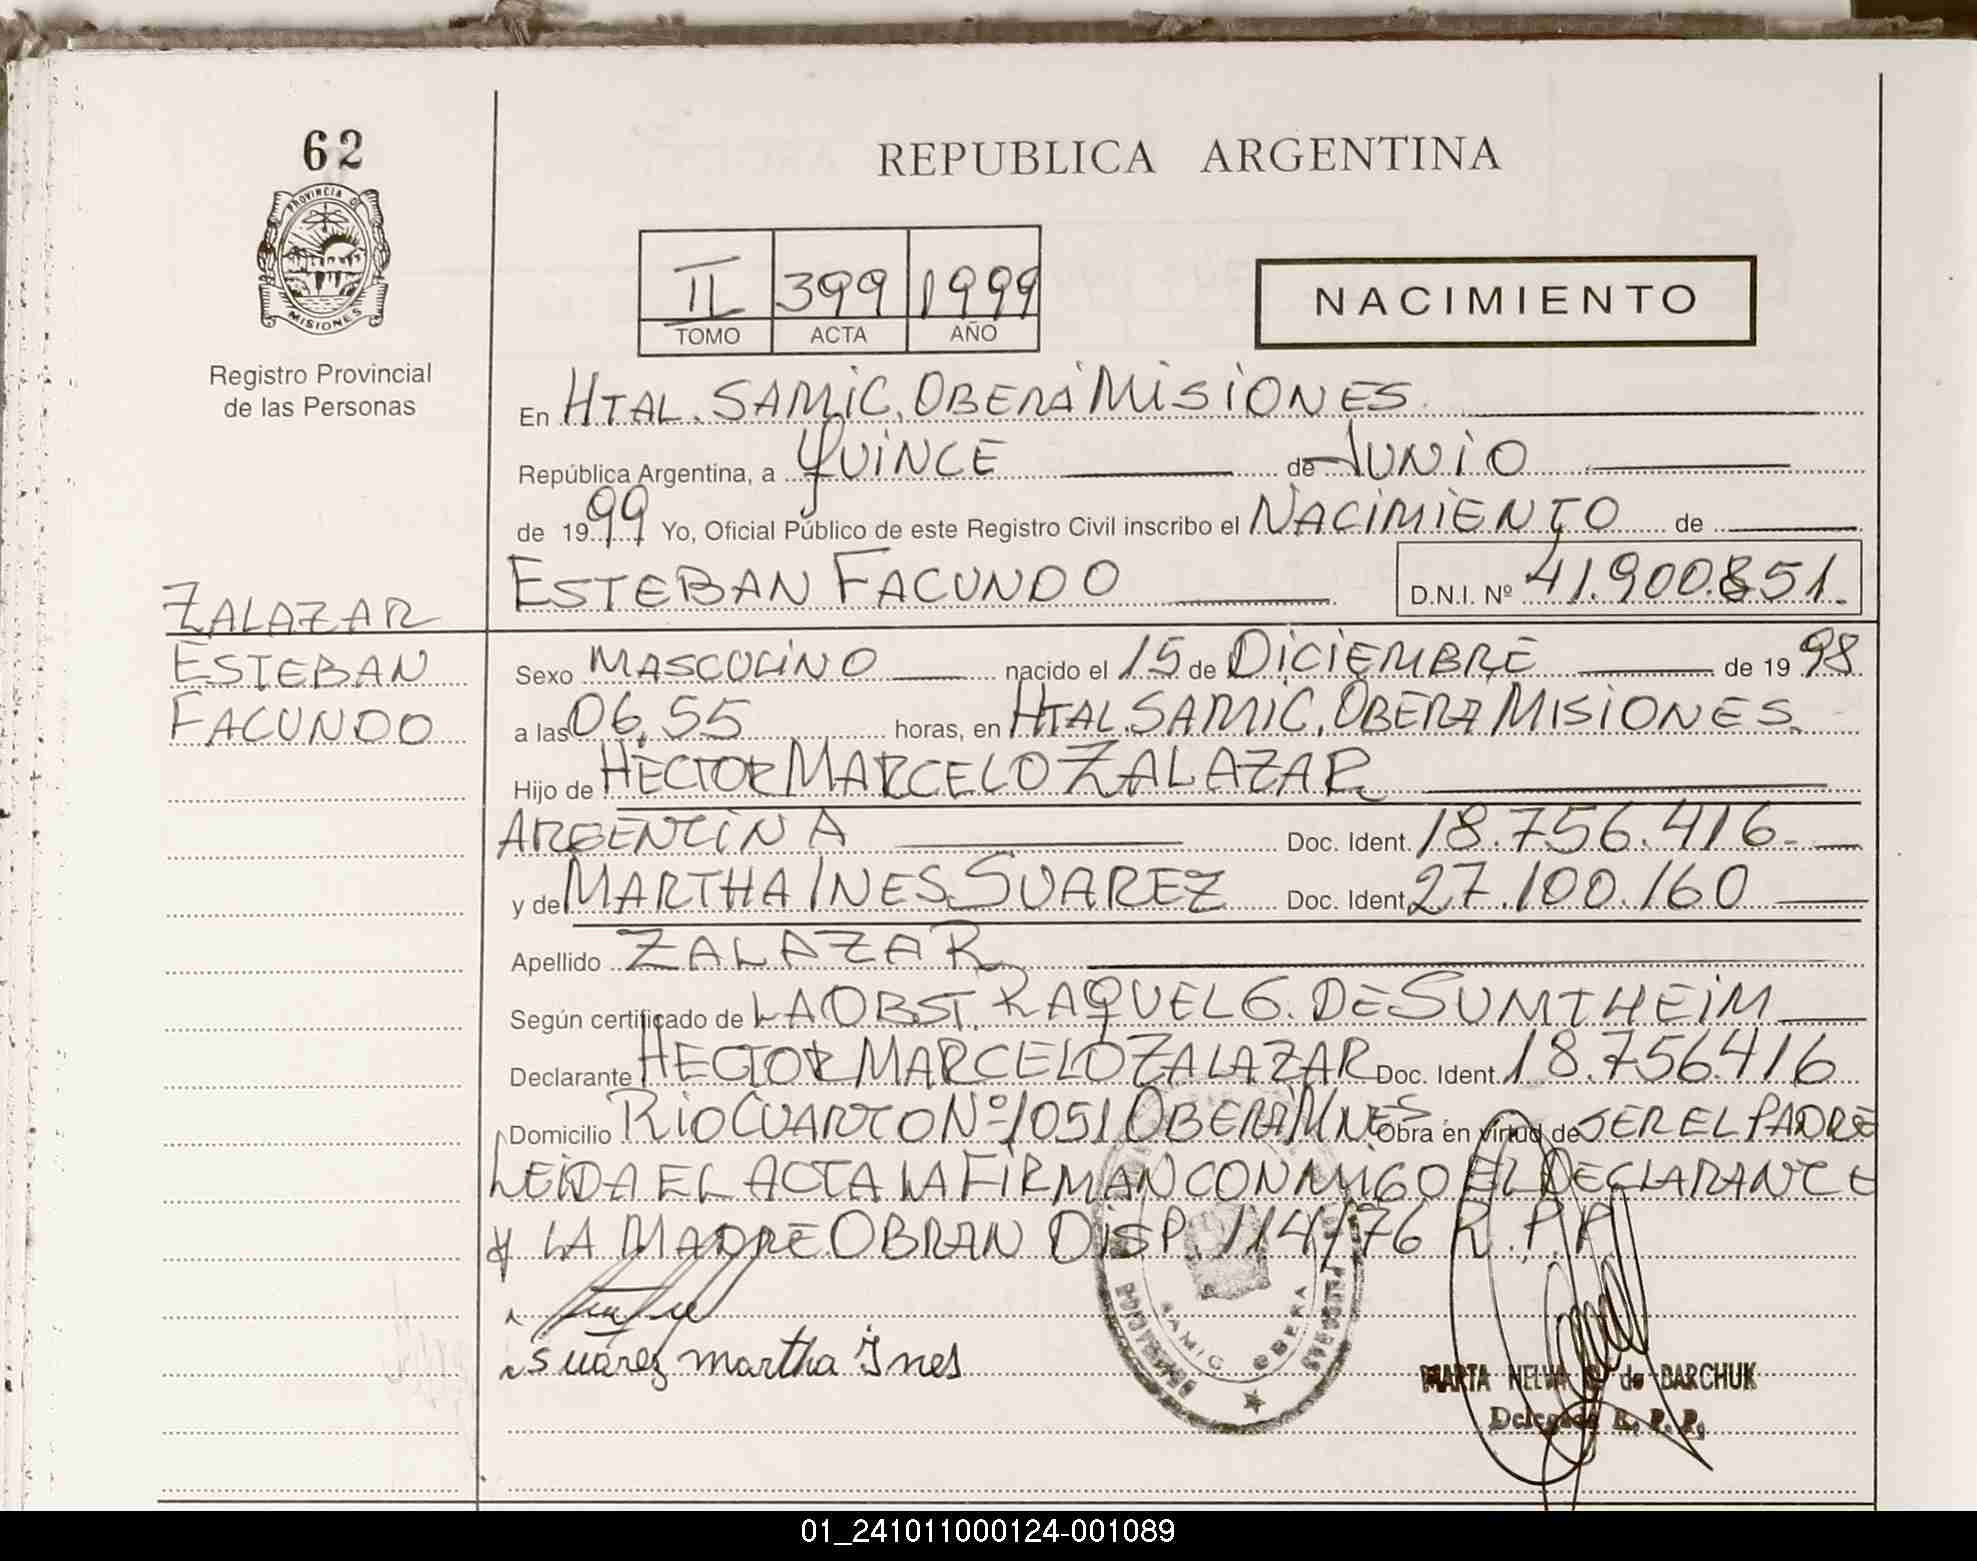 62
PROVINCIA DE
MISIONES
Registro Provincial
de las Personas
REPUBLICA ARGENTINA
II 399 1999
TOMO ACTA AÑO
NACIMIENTO
En HTAL. SAMIC. OBERÁ MISIONES.
República Argentina, a QUINCE de JUNIO
de 1999 Yo, Oficial Público de este Registro Civil inscribo el NACIMIENTO de
ESTEBAN FACUNDO D.N.I. Nº 41.900.851.
ZALAZAR
ESTEBAN
FACUNDO
Sexo MASCULINO nacido el 15 de DICIEMBRE de 1998
a las 06,55 horas, en HTAL. SAMIC. OBERA MISIONES.
Hijo de HECTOR MARCELO ZALAZAR
ARGENTINA Doc. Ident. 18.756.416-
y de MARTHA INES SUAREZ Doc. Ident. 27.100.160
Apellido ZALAZAR
Según certificado de LA OBST. RAQUEL G. DE SUMTHEIM
Declarante HECTOR MARCELO ZALAZAR Doc. Ident. 18.756416
Domicilio RIO CUARTO Nº 1051 OBERA MNES Obra en virtud de SER EL PADRE
LEIDA EL ACTA LA FIRMAN CONMIGO EL DECLARANTE
Y LA MADRE OBRAN DISP. 114/76 R.P.P
Suárez martha Ines
SAMIC OBERA
MARTA NELVA de BARCHUK
Delegada R. P. P.
01_241011000124-001089